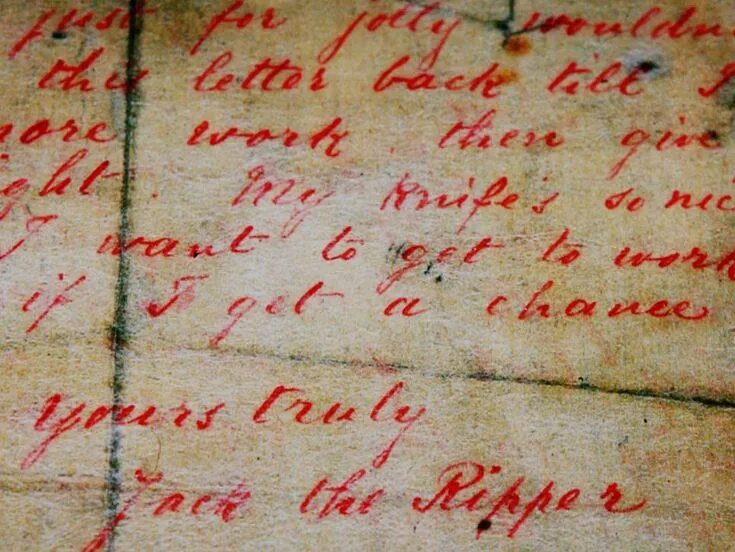 just for jolly wouldn
this letter back till I
more work then give
ight. My knife's so nic
I want to get to work
if I get a chance
yours truly
Jack the Ripper